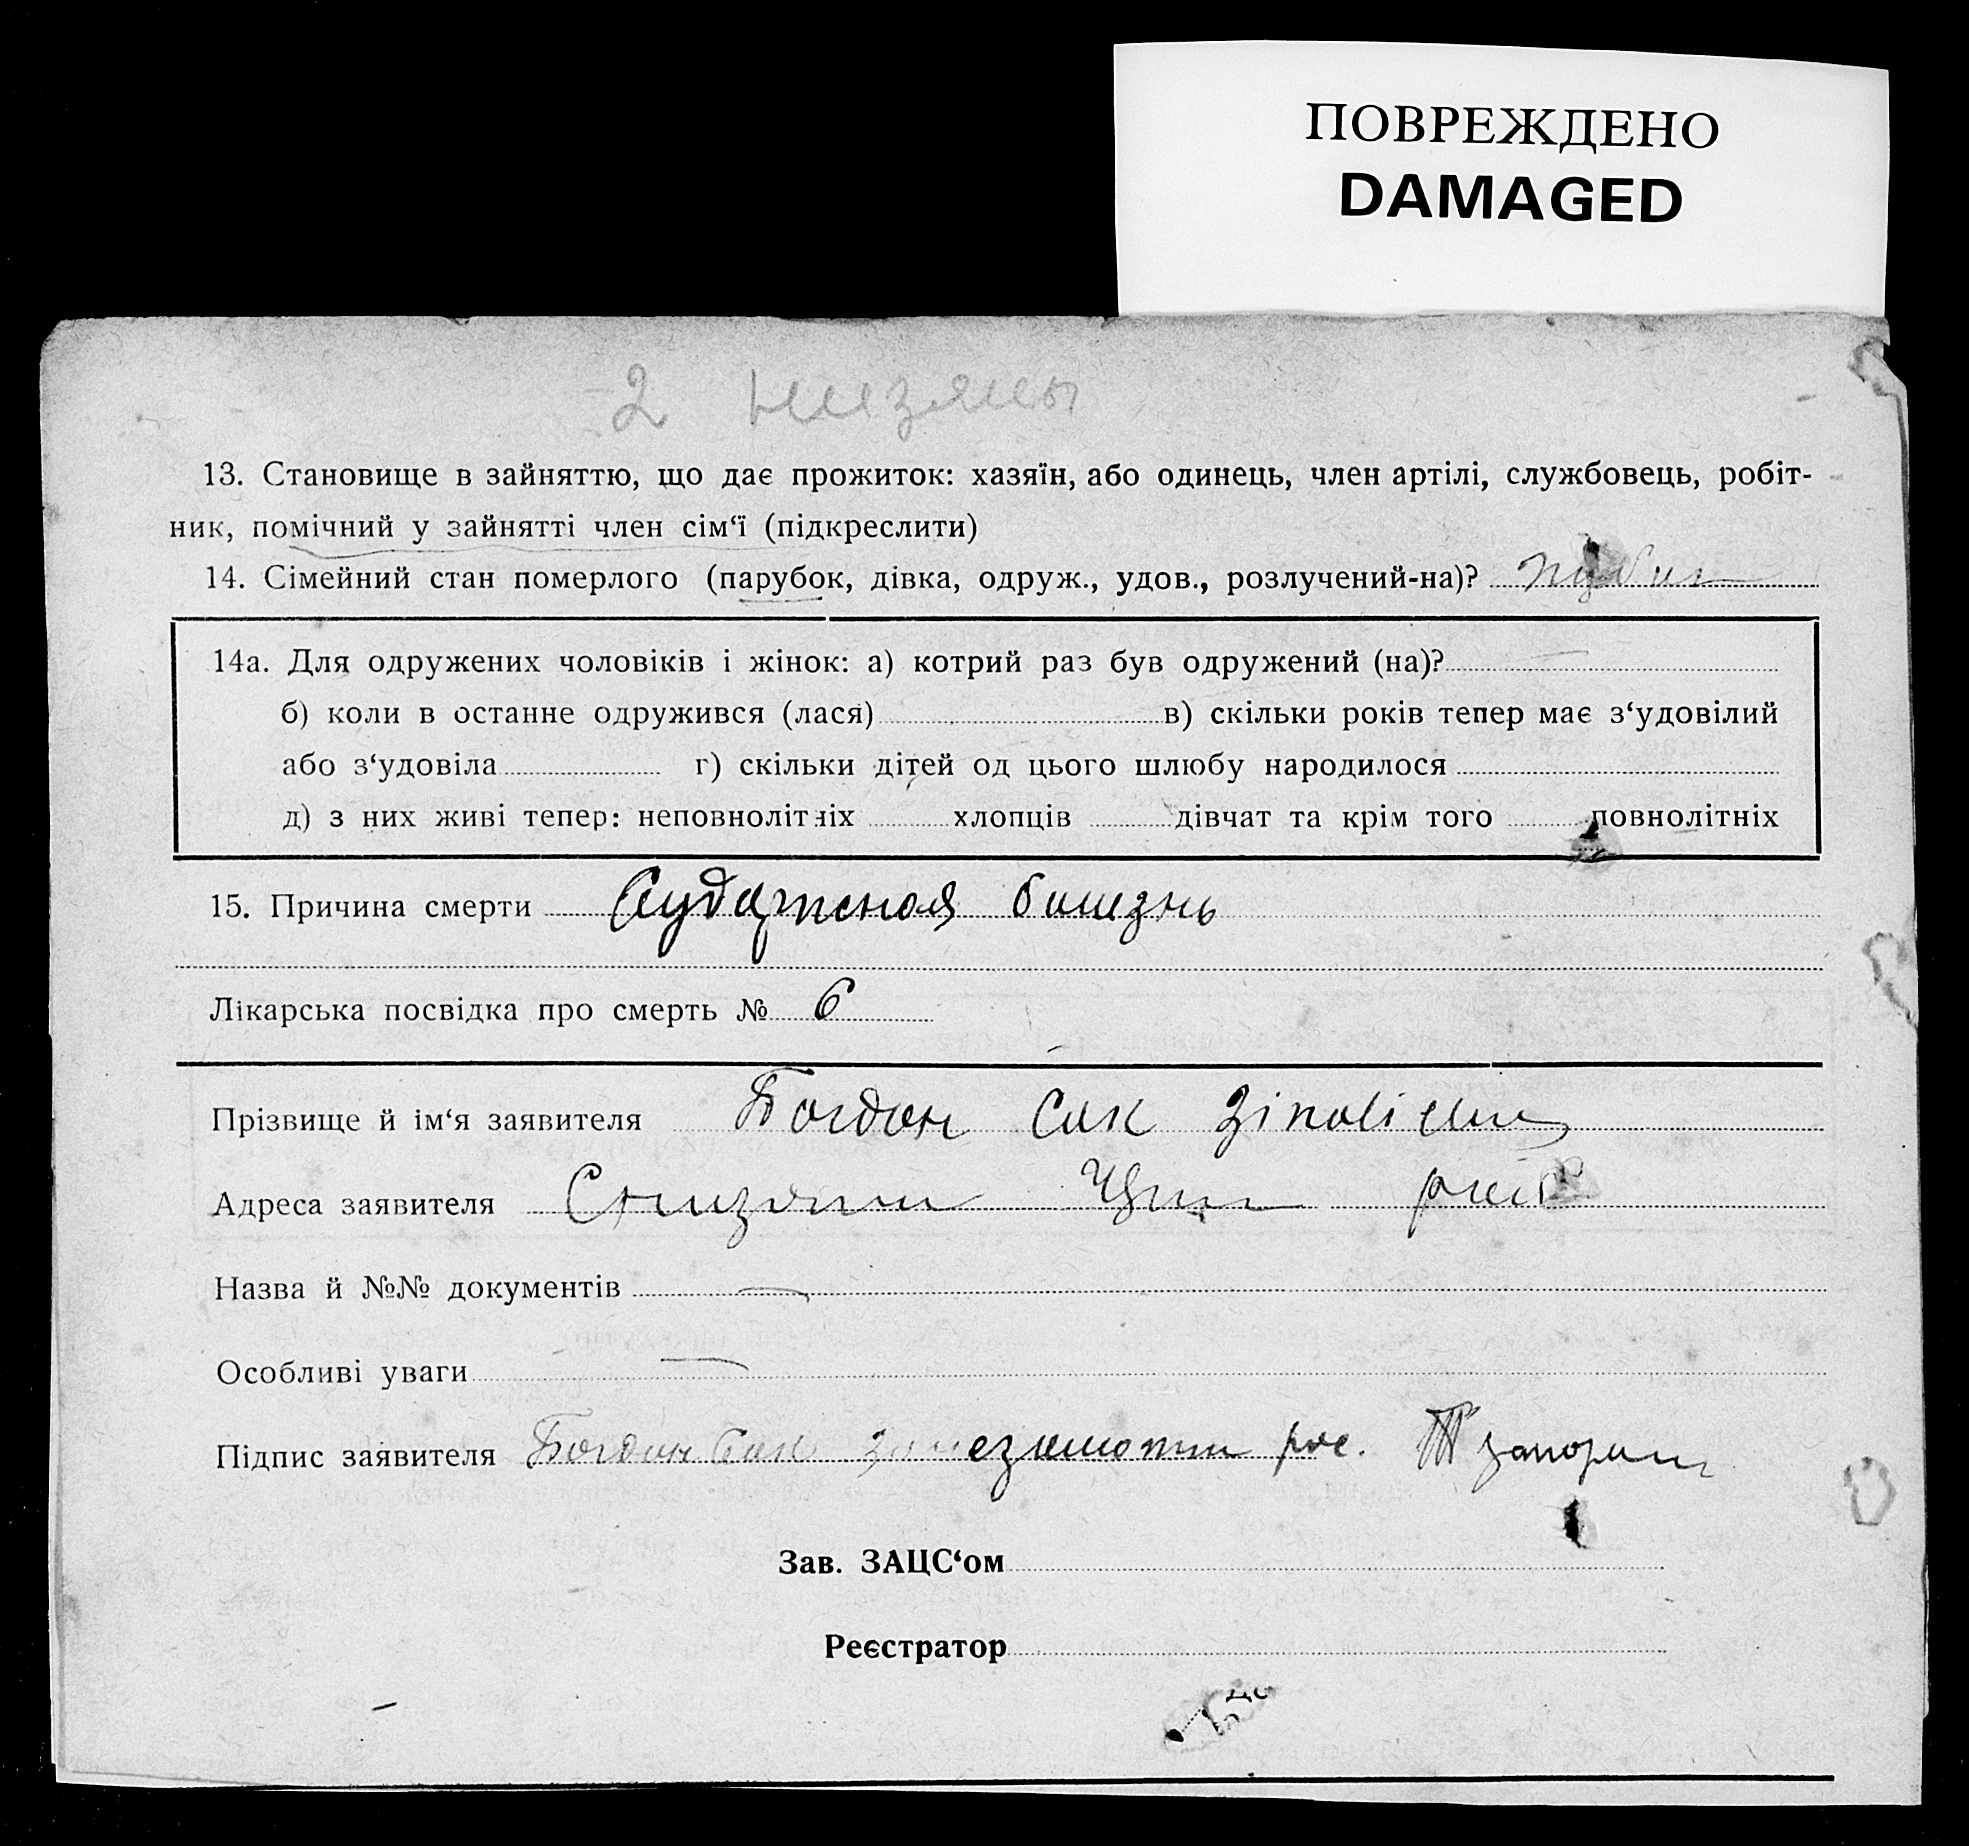 ПОВРЕЖДЕНО
DAMAGED
2
13. Становище в зайняттю, що дає прожиток: хазяїн, або одинець, член артілі, службовець, робіт-
ник, помічний у зайнятті член сім‘ї (підкреслити)
14. Сімейний стан померлого (парубок, дівка, одруж., удов., розлучений-на)?
14а. Для одружених чоловіків і жінок: а) котрий раз був одружений (на)?
б) коли в останне одружився (лася) в) скільки років тепер має з‘удовілий
або з‘удовіла г) скільки дітей од цього шлюбу народилося
д) з них живі тепер: неповнолітніх хлопців дівчат та крім того повнолітніх
15. Причина смерти Судорожная болезнь
Лікарська посвідка про смерть № 6
Прізвище й ім‘я заявителя Богдан Сак
Адреса заявителя
Назва й №№ документів —
Особливі уваги —
Підпис заявителя Богдан Сак
Зав. ЗАЦС‘ом
Реєстратор